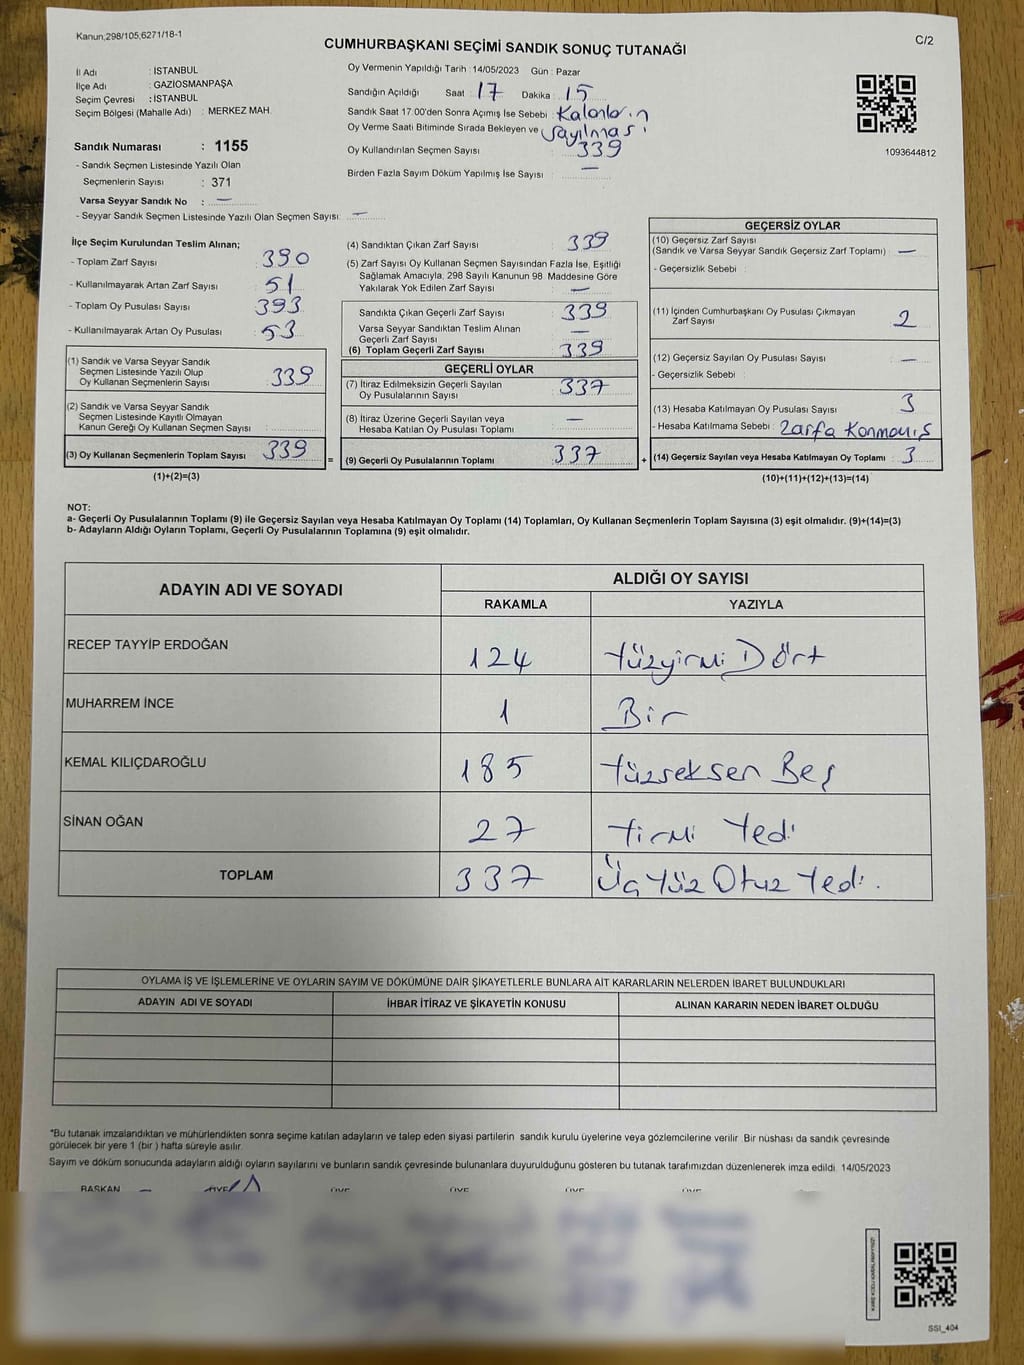 Kanun,298/105,6271/18-1
C/2
CUMHURBAŞKANI SEÇİMİ SANDIK SONUÇ TUTANAĞI
İl Adı : İSTANBUL
İlçe Adı : GAZİOSMANPAŞA
Seçim Çevresi : İSTANBUL
Seçim Bölgesi (Mahalle Adı) : MERKEZ MAH.
Sandık Numarası : 1155
- Sandık Seçmen Listesinde Yazılı Olan
Seçmenlerin Sayısı : 371
Varsa Seyyar Sandık No : —
- Seyyar Sandık Seçmen Listesinde Yazılı Olan Seçmen Sayısı: —
Oy Vermenin Yapıldığı Tarih : 14/05/2023 Gün : Pazar
Sandığın Açıldığı Saat : 17 Dakika : 15
Sandık Saat 17.00'den Sonra Açımış İse Sebebi : Kalanların
Oy Verme Saati Bitiminde Sırada Bekleyen ve Sayılması
Oy Kullandırılan Seçmen Sayısı : 339
Birden Fazla Sayım Döküm Yapılmış İse Sayısı : —
1093644812
İlçe Seçim Kurulundan Teslim Alınan;
- Toplam Zarf Sayısı : 390
- Kullanılmayarak Artan Zarf Sayısı : 51
- Toplam Oy Pusulası Sayısı : 393
- Kullanılmayarak Artan Oy Pusulası : 53
(1) Sandık ve Varsa Seyyar Sandık
Seçmen Listesinde Yazılı Olup
Oy Kullanan Seçmenlerin Sayısı : 339
(2) Sandık ve Varsa Seyyar Sandık
Seçmen Listesinde Kayıtlı Olmayan
Kanun Gereği Oy Kullanan Seçmen Sayısı :
(3) Oy Kullanan Seçmenlerin Toplam Sayısı : 339
(1)+(2)=(3)
=
(4) Sandıktan Çıkan Zarf Sayısı : 339
(5) Zarf Sayısı Oy Kullanan Seçmen Sayısından Fazla İse, Eşitliği
Sağlamak Amacıyla, 298 Sayılı Kanunun 98. Maddesine Göre
Yakılarak Yok Edilen Zarf Sayısı : —
Sandıkta Çıkan Geçerli Zarf Sayısı : 339
Varsa Seyyar Sandıktan Teslim Alınan
Geçerli Zarf Sayısı : —
(6) Toplam Geçerli Zarf Sayısı : 339
GEÇERLİ OYLAR
(7) İtiraz Edilmeksizin Geçerli Sayılan
Oy Pusulalarının Sayısı : 337
(8) İtiraz Üzerine Geçerli Sayılan veya
Hesaba Katılan Oy Pusulası Toplamı : —
(9) Geçerli Oy Pusulalarının Toplamı : 337
+
GEÇERSİZ OYLAR
(10) Geçersiz Zarf Sayısı
(Sandık ve Varsa Seyyar Sandık Geçersiz Zarf Toplamı) : —
- Geçersizlik Sebebi :
(11) İçinden Cumhurbaşkanı Oy Pusulası Çıkmayan
Zarf Sayısı : 2
(12) Geçersiz Sayılan Oy Pusulası Sayısı : —
- Geçersizlik Sebebi :
(13) Hesaba Katılmayan Oy Pusulası Sayısı : 3
- Hesaba Katılmama Sebebi : Zarfa Konmamış
(14) Geçersiz Sayılan veya Hesaba Katılmayan Oy Toplamı : 3
(10)+(11)+(12)+(13)=(14)
NOT:
a- Geçerli Oy Pusulalarının Toplamı (9) ile Geçersiz Sayılan veya Hesaba Katılmayan Oy Toplamı (14) Toplamları, Oy Kullanan Seçmenlerin Toplam Sayısına (3) eşit olmalıdır. (9)+(14)=(3)
b- Adayların Aldığı Oyların Toplamı, Geçerli Oy Pusulalarının Toplamına (9) eşit olmalıdır.
ADAYIN ADI VE SOYADI
ALDIĞI OY SAYISI
RAKAMLA YAZIYLA
RECEP TAYYİP ERDOĞAN 124 Yüzyirmi Dört
MUHARREM İNCE 1 Bir
KEMAL KILIÇDAROĞLU 185 Yüzseksen Beş
SİNAN OĞAN 27 Yirmi Yedi
TOPLAM 337 Üç Yüz Otuz Yedi.
OYLAMA İŞ VE İŞLEMLERİNE VE OYLARIN SAYIM VE DÖKÜMÜNE DAİR ŞİKAYETLERLE BUNLARA AİT KARARLARIN NELERDEN İBARET BULUNDUKLARI
ADAYIN ADI VE SOYADI İHBAR İTİRAZ VE ŞİKAYETİN KONUSU ALINAN KARARIN NEDEN İBARET OLDUĞU
*Bu tutanak imzalandıktan ve mühürlendikten sonra seçime katılan adayların ve talep eden siyasi partilerin sandık kurulu üyelerine veya gözlemcilerine verilir. Bir nüshası da sandık çevresinde
görülecek bir yere 1 (bir) hafta süreyle asılır.
Sayım ve döküm sonucunda adayların aldığı oyların sayılarını ve bunların sandık çevresinde bulunanlara duyurulduğunu gösteren bu tutanak tarafımızdan düzenlenerek imza edildi. 14/05/2023
BAŞKAN ÜYE ÜYE ÜYE ÜYE ÜYE
SSI_404